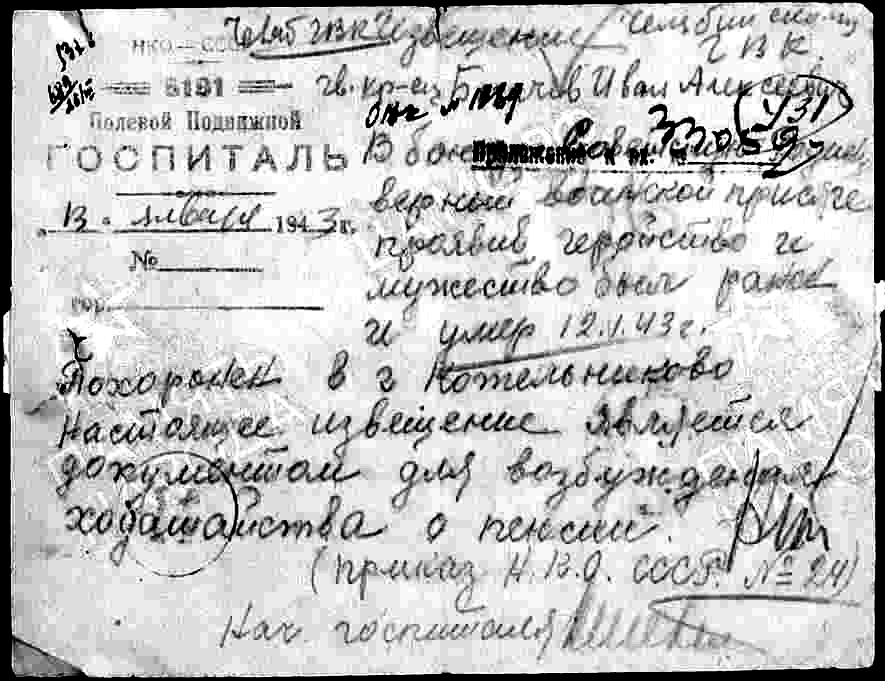 Челяб ГВК Извещение Челябинскому
НКО — СССР
Г В К
5181
гв. кр-ец Иван Алексеевич
431
Полевой Подвижной
ГОСПИТАЛЬ
33059
В боях
верный воинской присяге
"13" января 1943 г.
проявив геройство и
№
мужество был ранен
гор.
и умер 12.1.43 г.
Похоронен в г Котельниково
Настоящее извещение является
документом для возбуждения
ходатайства о пенсии.
(приказ Н.В.О. СССР. № 24)
Нач. госпиталя